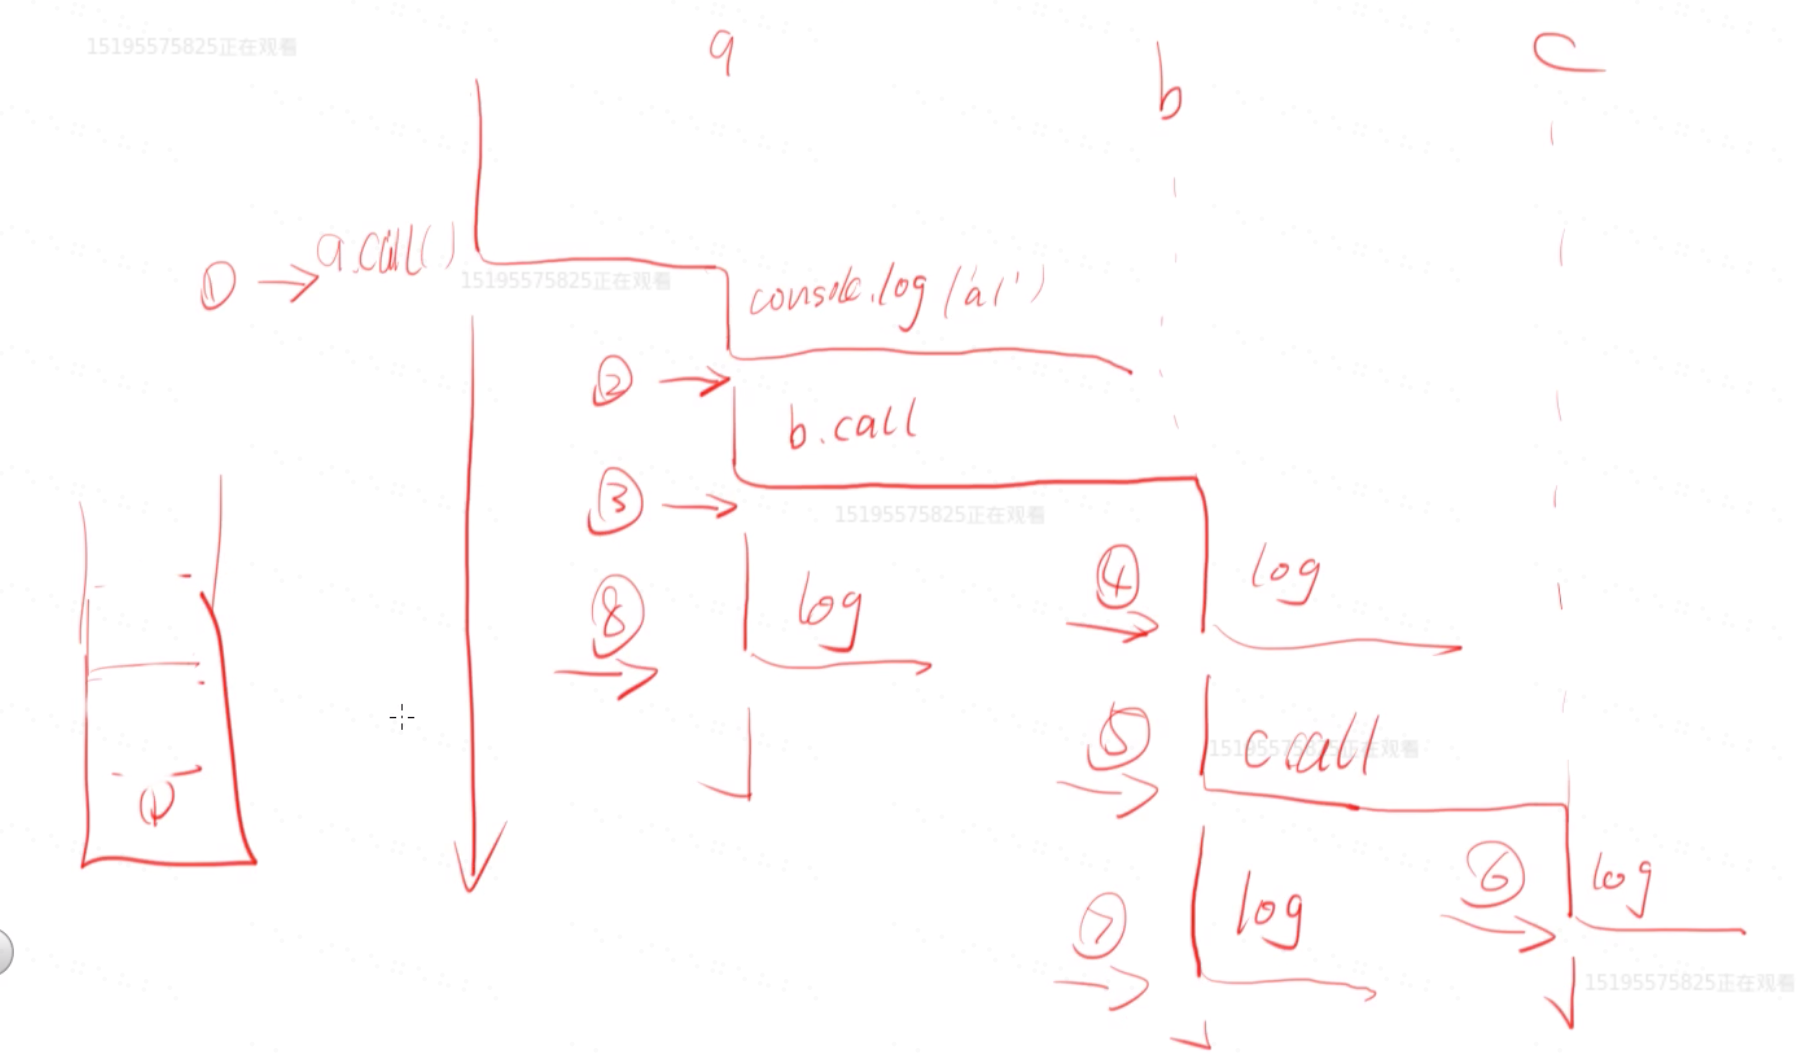 15195575825正在观看
a
b
c
① a.call()
15195575825正在观看
console.log('a1')
②
b.call
③
15195575825正在观看
④ log
⑧ log
⑤ c.call
15195575825正在观看
①
⑥ log
⑦ log
15195575825正在观看